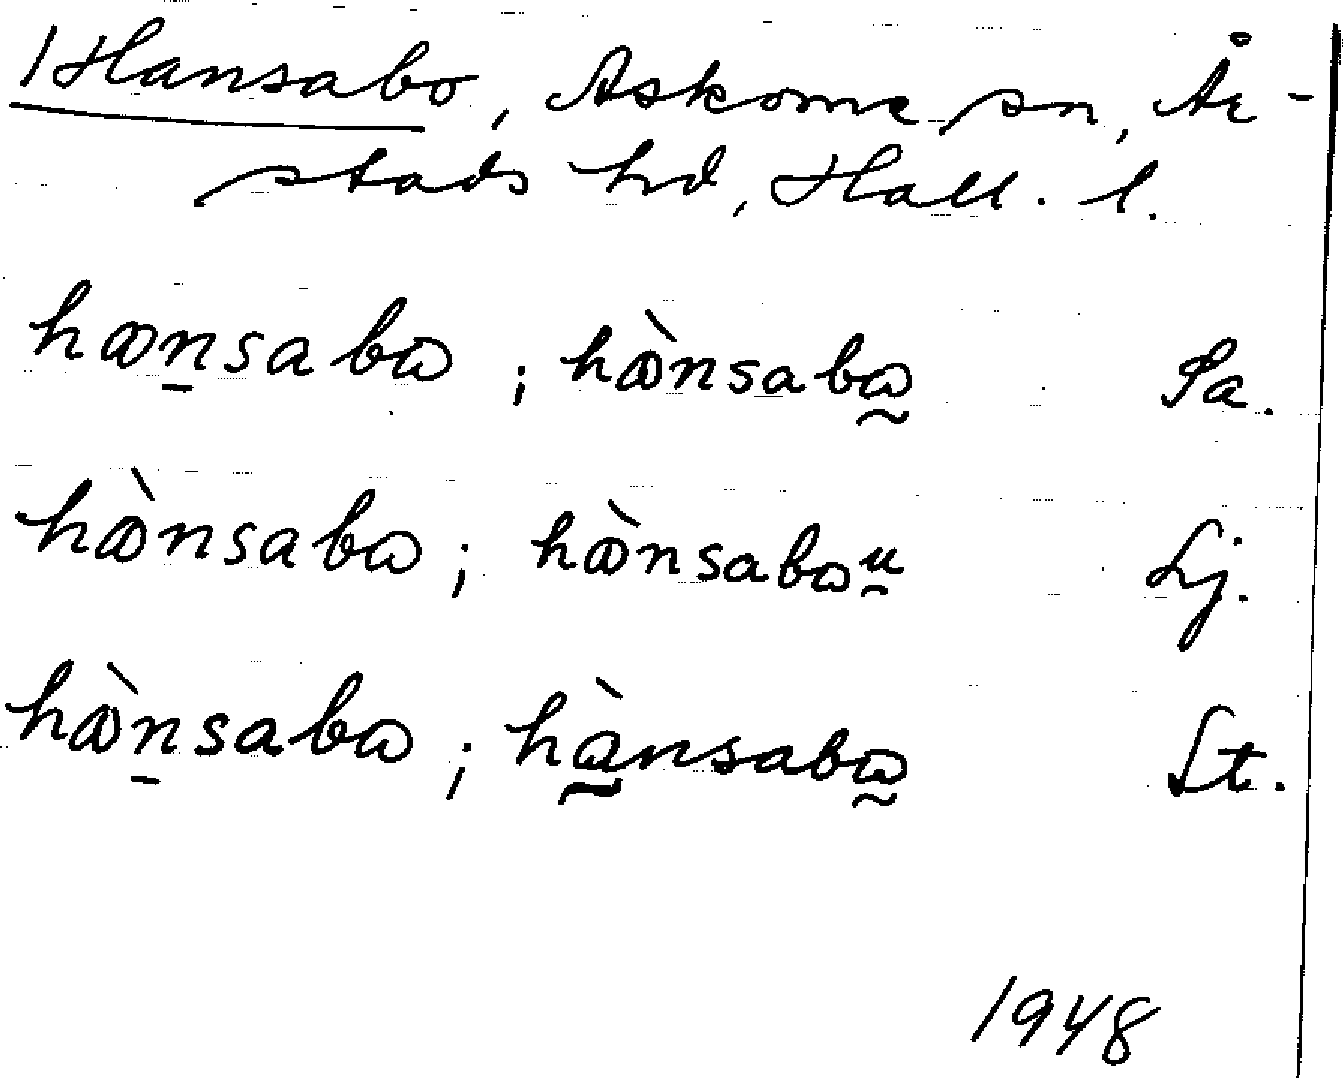 Hansabo, Askome sn, År-
stads hd, Hall. l.
hωn̲sabω ; hὼnsabω̰ Sa.
hὼnsabω ; hὼnsabωu̯ Lj.
hὼn̲sabω ; hà̰nsabω̰ St.
1948